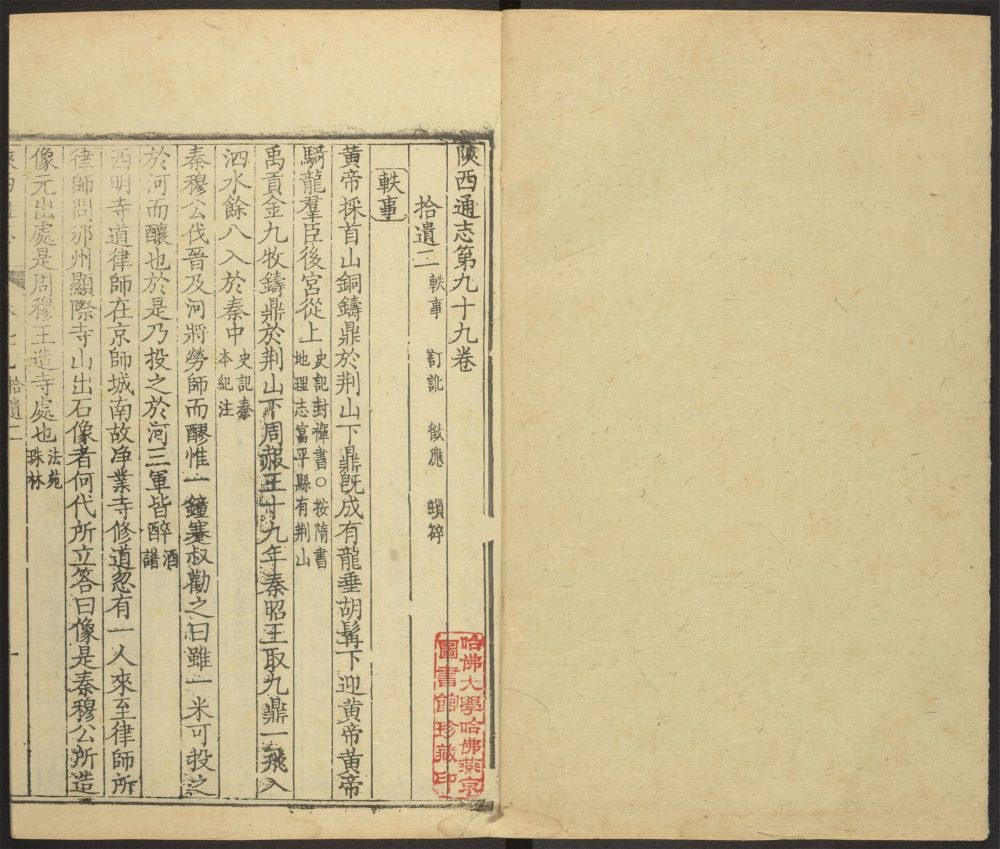 陝西通志第九十九卷
拾遺二 軼事 訂訛 徵應 瑣碎
軼事
黄帝採首山銅鑄鼎於荆山下鼎既成有龍垂胡髯下迎黄帝黄帝
騎龍羣臣後宮從上 史記封禪書○按隋書地理志富平縣有荆山
禹貢金九牧鑄鼎於荆山下周赧王十九年秦昭王取九鼎一飛入
泗水餘八入於秦中 史記秦本紀注
秦穆公伐晉及河將勞師而醪惟一鐘蹇叔勸之曰雖一米可投之
於河而釀也於是乃投之於河三軍皆醉 酒譜
西明寺道律師在京師城南故净業寺修道忽有一人來至律師所
律師問邠州顯際寺山出石像者何代所立答曰像是秦穆公所造
像元出處是周穆王造寺處也 法苑珠林
拾遺二
一
哈佛大學哈佛燕京
圖書館珍藏印